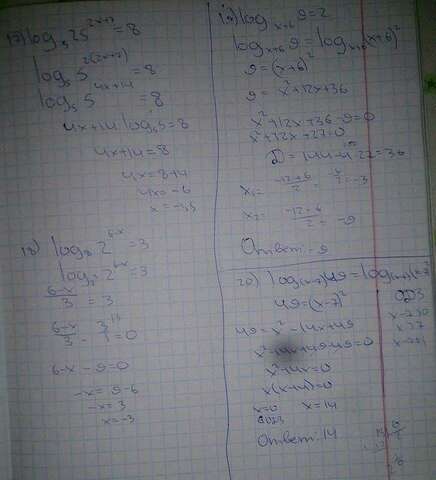 17) log₅ 25^(2x+7) = 8
log₅ 5^(2(2x+7)) = 8
log₅ 5^(4x+14) = 8
4x+14 log₅5 = 8
4x+14 = 8
4x = 8+14
4x = -6
x = -1,5
18) log₈ 2^(6-x) = 3
log₂³ 2^(6-x) = 3
(6-x)/3 = 3
(6-x)/3 - 3/1 = 0
6-x-9=0
-x = 9-6
-x = 3
x = -3
19) log_(x+6) 9 = 2
log_(x+6) 9 = log_(x+6) (x+6)²
9 = (x+6)²
9 = x²+12x+36
x²+12x+36-9=0
x²+12x+27=0
D = 144-4·27=36
x₁ = (-12+6)/2 = -3
x₂ = (-12-6)/2 = -9
Ответ: -9
20) log_(x-7) 49 = log_(x-7) (x-7)²
49 = (x-7)²
49 = x²-14x+49
x²-14x+49-49=0
x²+14x=0
x(x+14)=0
x=0 x=14
Ответ: 14
ОДЗ
x-7>0
x>7